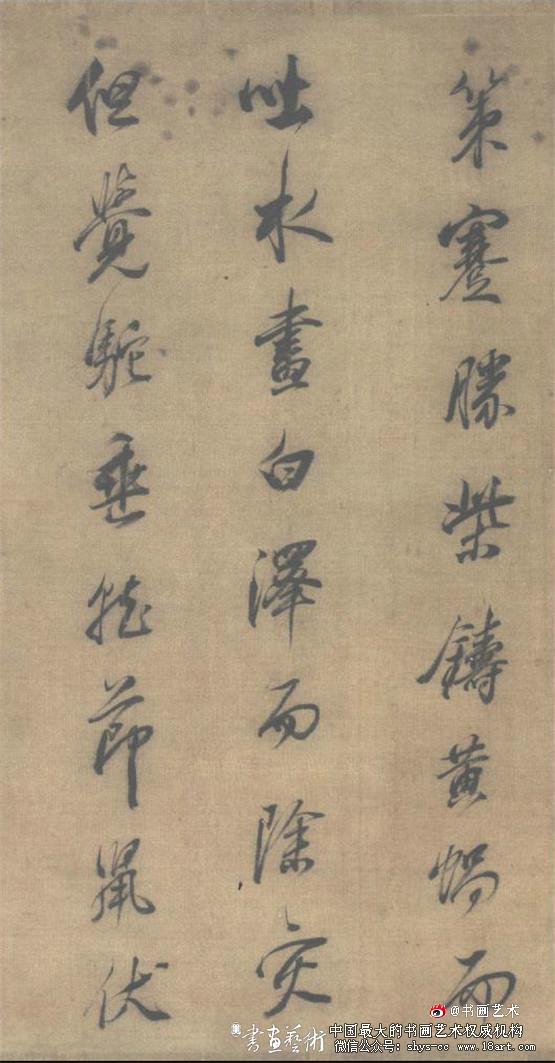 策蹇勝柴鑄黃蝸而
吐水畫白澤而除灾
但覺駝垂節鼠伏
@书画艺术
書画藝術
中国最大的书画艺术权威机构
微信公众号: shys-cc www.18art.com